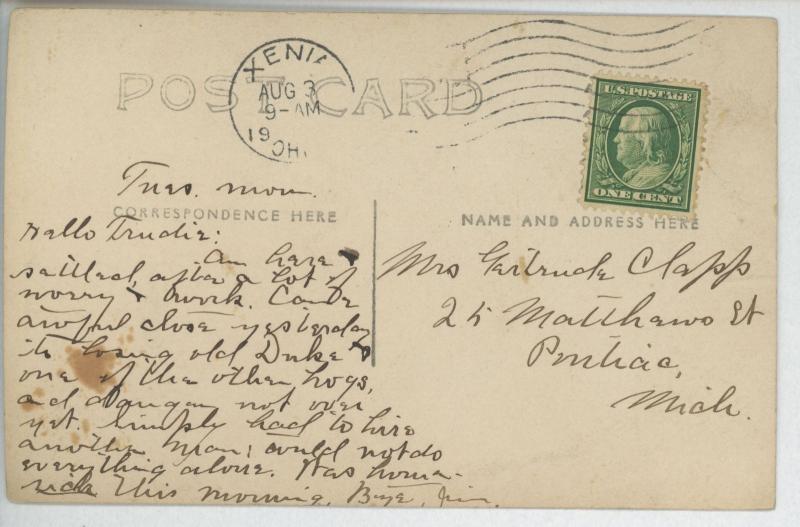 POST CARD
XENIA
AUG 3
9-AM
19
OH
U.S. POSTAGE
ONE CENT
CORRESPONDENCE HERE
NAME AND ADDRESS HERE
Tues. morn.
Hello Trudie:
Am here &
settled, after a lot of
worry & work. Came
awful close yesterday
to losing old Duke &
one of the other hogs,
and danger not over
yet. Simply had to hire
another man; could not do
everything alone. Was home-
sick this morning. Bye, Jim.
Mrs Gertrude Clapp
25 Matthews St
Pontiac,
Mich.